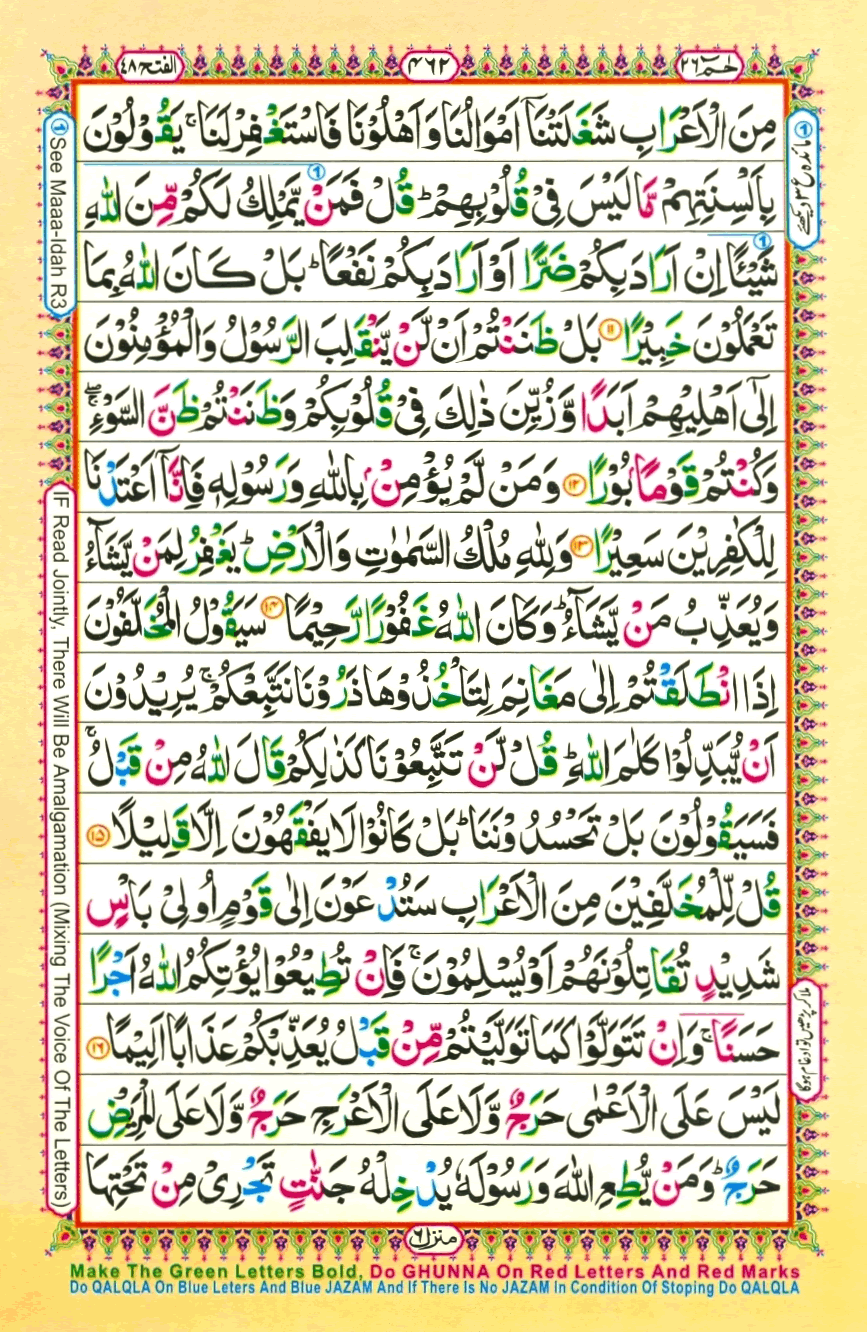 الفتح ٤٨
٤٦٢
حٰمٓ ٢٦
مِنَ الْاَعْرَابِ شَغَلَتْنَاۤ اَمْوَالُنَا وَاَهْلُوْنَا فَاسْتَغْفِرْ لَنَا ۚ يَقُوْلُوْنَ
بِاَلْسِنَتِهِمْ مَّا لَيْسَ فِیْ قُلُوْبِهِمْ ؕ قُلْ فَمَنْ يَّمْلِكُ لَكُمْ مِّنَ اللّٰهِ
شَيْـًٔا اِنْ اَرَادَ بِكُمْ ضَرًّا اَوْ اَرَادَ بِكُمْ نَفْعًا ؕ بَلْ كَانَ اللّٰهُ بِمَا
تَعْمَلُوْنَ خَبِيْرًا ۱۱ بَلْ ظَنَنْتُمْ اَنْ لَّنْ يَّنْقَلِبَ الرَّسُوْلُ وَالْمُؤْمِنُوْنَ
اِلٰۤى اَهْلِيْهِمْ اَبَدًا وَّزُيِّنَ ذٰلِكَ فِیْ قُلُوْبِكُمْ وَظَنَنْتُمْ ظَنَّ السَّوْءِ ۖۚ
وَكُنْتُمْ قَوْمًۢا بُوْرًا ۱۲ وَمَنْ لَّمْ يُؤْمِنْۢ بِاللّٰهِ وَرَسُوْلِهٖ فَاِنَّاۤ اَعْتَدْنَا
لِلْكٰفِرِيْنَ سَعِيْرًا ۱۳ وَلِلّٰهِ مُلْكُ السَّمٰوٰتِ وَالْاَرْضِ ؕ يَغْفِرُ لِمَنْ يَّشَآءُ
وَيُعَذِّبُ مَنْ يَّشَآءُ ؕ وَكَانَ اللّٰهُ غَفُوْرًا رَّحِيْمًا ۱۴ سَيَقُوْلُ الْمُخَلَّفُوْنَ
اِذَا انْطَلَقْتُمْ اِلٰى مَغَانِمَ لِتَاْخُذُوْهَا ذَرُوْنَا نَتَّبِعْكُمْ ۚ يُرِيْدُوْنَ
اَنْ يُّبَدِّلُوْا كَلٰمَ اللّٰهِ ؕ قُلْ لَّنْ تَتَّبِعُوْنَا كَذٰلِكُمْ قَالَ اللّٰهُ مِنْ قَبْلُ ۚ
فَسَيَقُوْلُوْنَ بَلْ تَحْسُدُوْنَنَا ؕ بَلْ كَانُوْا لَا يَفْقَهُوْنَ اِلَّا قَلِيْلًا ۱۵
قُلْ لِّلْمُخَلَّفِيْنَ مِنَ الْاَعْرَابِ سَتُدْعَوْنَ اِلٰى قَوْمٍ اُولِیْ بَاْسٍ
شَدِيْدٍ تُقَاتِلُوْنَهُمْ اَوْ يُسْلِمُوْنَ ۚ فَاِنْ تُطِيْعُوْا يُؤْتِكُمُ اللّٰهُ اَجْرًا
حَسَنًا ۚ وَاِنْ تَتَوَلَّوْا كَمَا تَوَلَّيْتُمْ مِّنْ قَبْلُ يُعَذِّبْكُمْ عَذَابًا اَلِيْمًا ۱۶
لَيْسَ عَلَى الْاَعْمٰى حَرَجٌ وَّلَا عَلَى الْاَعْرَجِ حَرَجٌ وَّلَا عَلَى الْمَرِيْضِ
حَرَجٌ ؕ وَمَنْ يُّطِعِ اللّٰهَ وَرَسُوْلَهٗ يُدْخِلْهُ جَنّٰتٍ تَجْرِیْ مِنْ تَحْتِهَا
منزل ٦
① مائدہ ع ۳ دیکھئے
ملا کر پڑھیں تو ادغام ہوگا
① See Maaa-Idah R3
IF Read Jointly, There Will Be Amalgamation (Mixing The Voice Of The Letters)
Make The Green Letters Bold, Do GHUNNA On Red Letters And Red Marks
Do QALQLA On Blue Leters And Blue JAZAM And If There Is No JAZAM In Condition Of Stoping Do QALQLA